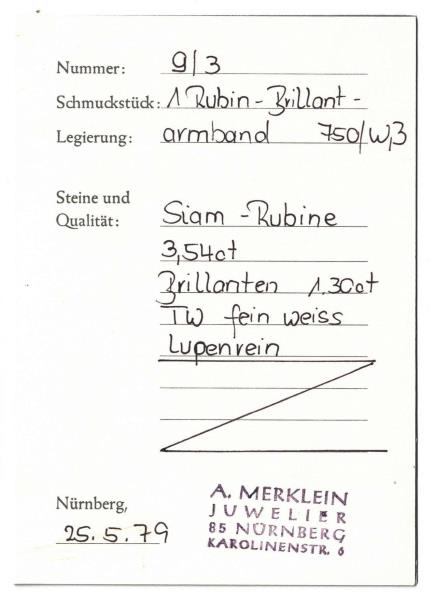 Nummer: 9/3
Schmuckstück: 1 Rubin-Brillant-
Legierung: armband 750/W,3
Steine und
Qualität: Siam-Rubine
3,54ct
Brillanten 1.30ct
TW fein weiss
Lupenrein
Nürnberg,
25.5.79
A. MERKLEIN
JUWELIER
85 NÜRNBERG
KAROLINENSTR. 6